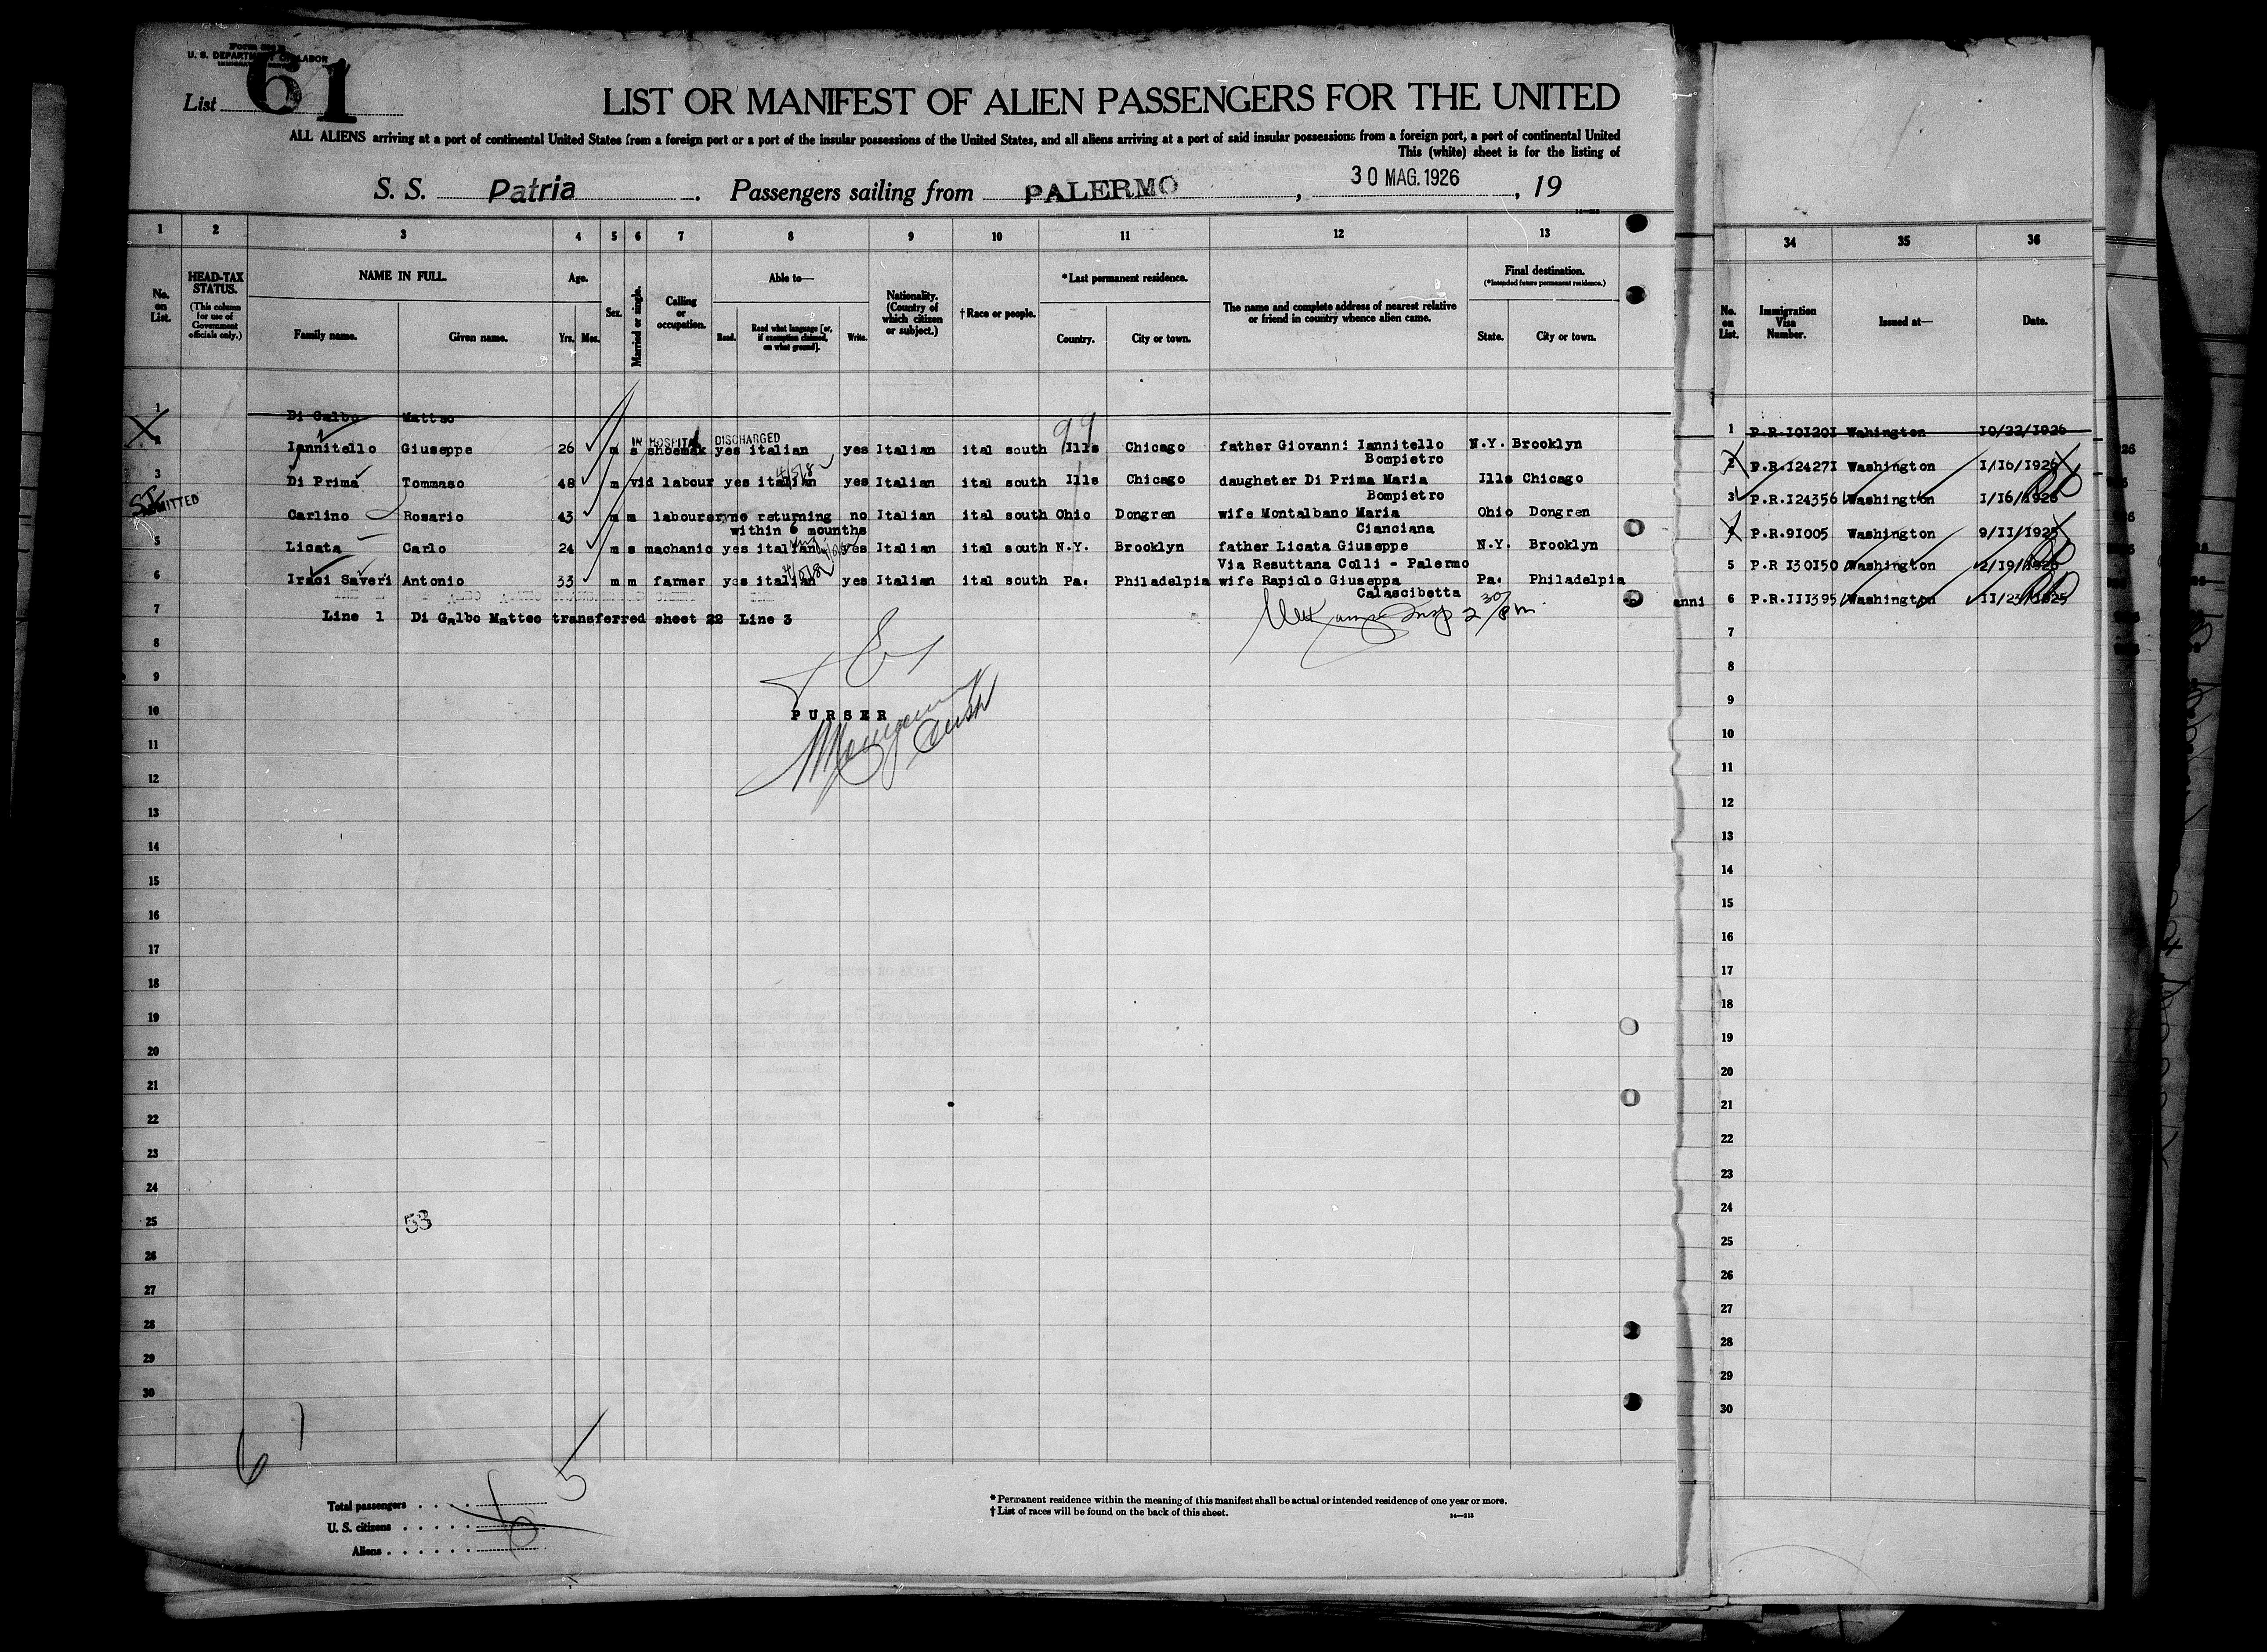 Form 500 B
U. S. DEPARTMENT OF LABOR
List 61
LIST OR MANIFEST OF ALIEN PASSENGERS FOR THE UNITED
ALL ALIENS arriving at a port of continental United States from a foreign port or a port of the insular possessions of the United States, and all aliens arriving at a port of said insular possessions from a foreign port, a port of continental United
This (white) sheet is for the listing of
S. S. Patria. Passengers sailing from PALERMO, 30 MAG. 1926, 19
1 2 3 4 5 6 7 8 9 10 11 12 13
No. on List.
HEAD-TAX STATUS. (This column for use of Government officials only.)
NAME IN FULL.
Family name. Given name.
Age.
Yrs. Mos.
Sex.
Married or single.
Calling or occupation.
Able to—
Read. Read what language [or, if exemption claimed, on what ground]. Write.
Nationality. (Country of which citizen or subject.)
† Race or people.
*Last permanent residence.
Country. City or town.
The name and complete address of nearest relative or friend in country whence alien came.
Final destination.
(*Intended future permanent residence.)
State. City or town.
34 35 36
No. on List. Immigration Visa Number. Issued at— Date.
1 Di Galbo Matteo
IN HOSPITAL DISCHARGED 99
2 Iannitello Giuseppe 26 m s shoemak yes italian yes Italian ital south Ills Chicago father Giovanni Iannitello N.Y. Brooklyn
Bompietro
3 Di Prima Tommaso 48 m vid labour yes italian yes Italian ital south Ills Chicago daugheter Di Prima Maria Ills Chicago
Bompietro
SI ADMITTED
Carlino Rosario 43 m m labourer no returning no Italian ital south Ohio Dongren wife Montalbano Maria Ohio Dongren
within 6 mounths Cianciana
5 Licata Carlo 24 m s machanic yes italian yes Italian ital south N.Y. Brooklyn father Licata Giuseppe N.Y. Brooklyn
Via Resuttana Colli - Palermo
6 Iraci Saveri Antonio 33 m m farmer yes italian yes Italian ital south Pa. Philadelpia wife Rapiolo Giuseppa Pa. Philadelpia
Calascibetta
7 Line 1 Di Galbo Matteo transferred sheet 22 Line 3
2 30 pm
8
9
10 PURSER
11
12
13
14
15
16
17
18
19
20
21
22
23
24
25 53
26
27
28
29
30
61
5
Total passengers
U. S. citizens
Aliens
* Permanent residence within the meaning of this manifest shall be actual or intended residence of one year or more.
† List of races will be found on the back of this sheet.
14—213
1 P.R.101201 Wahington 10/22/1926
2 P.R.124271 Washington 1/16/1926
3 P.R.124356 Washington 1/16/1926
4 P.R.91005 Washington 9/11/1925
5 P.R 130150 Washington 2/19/1926
anni 6 P.R.111395 Washington 11/23/1925
7
8
9
10
11
12
13
14
15
16
17
18
19
20
21
22
23
24
25
26
27
28
29
30